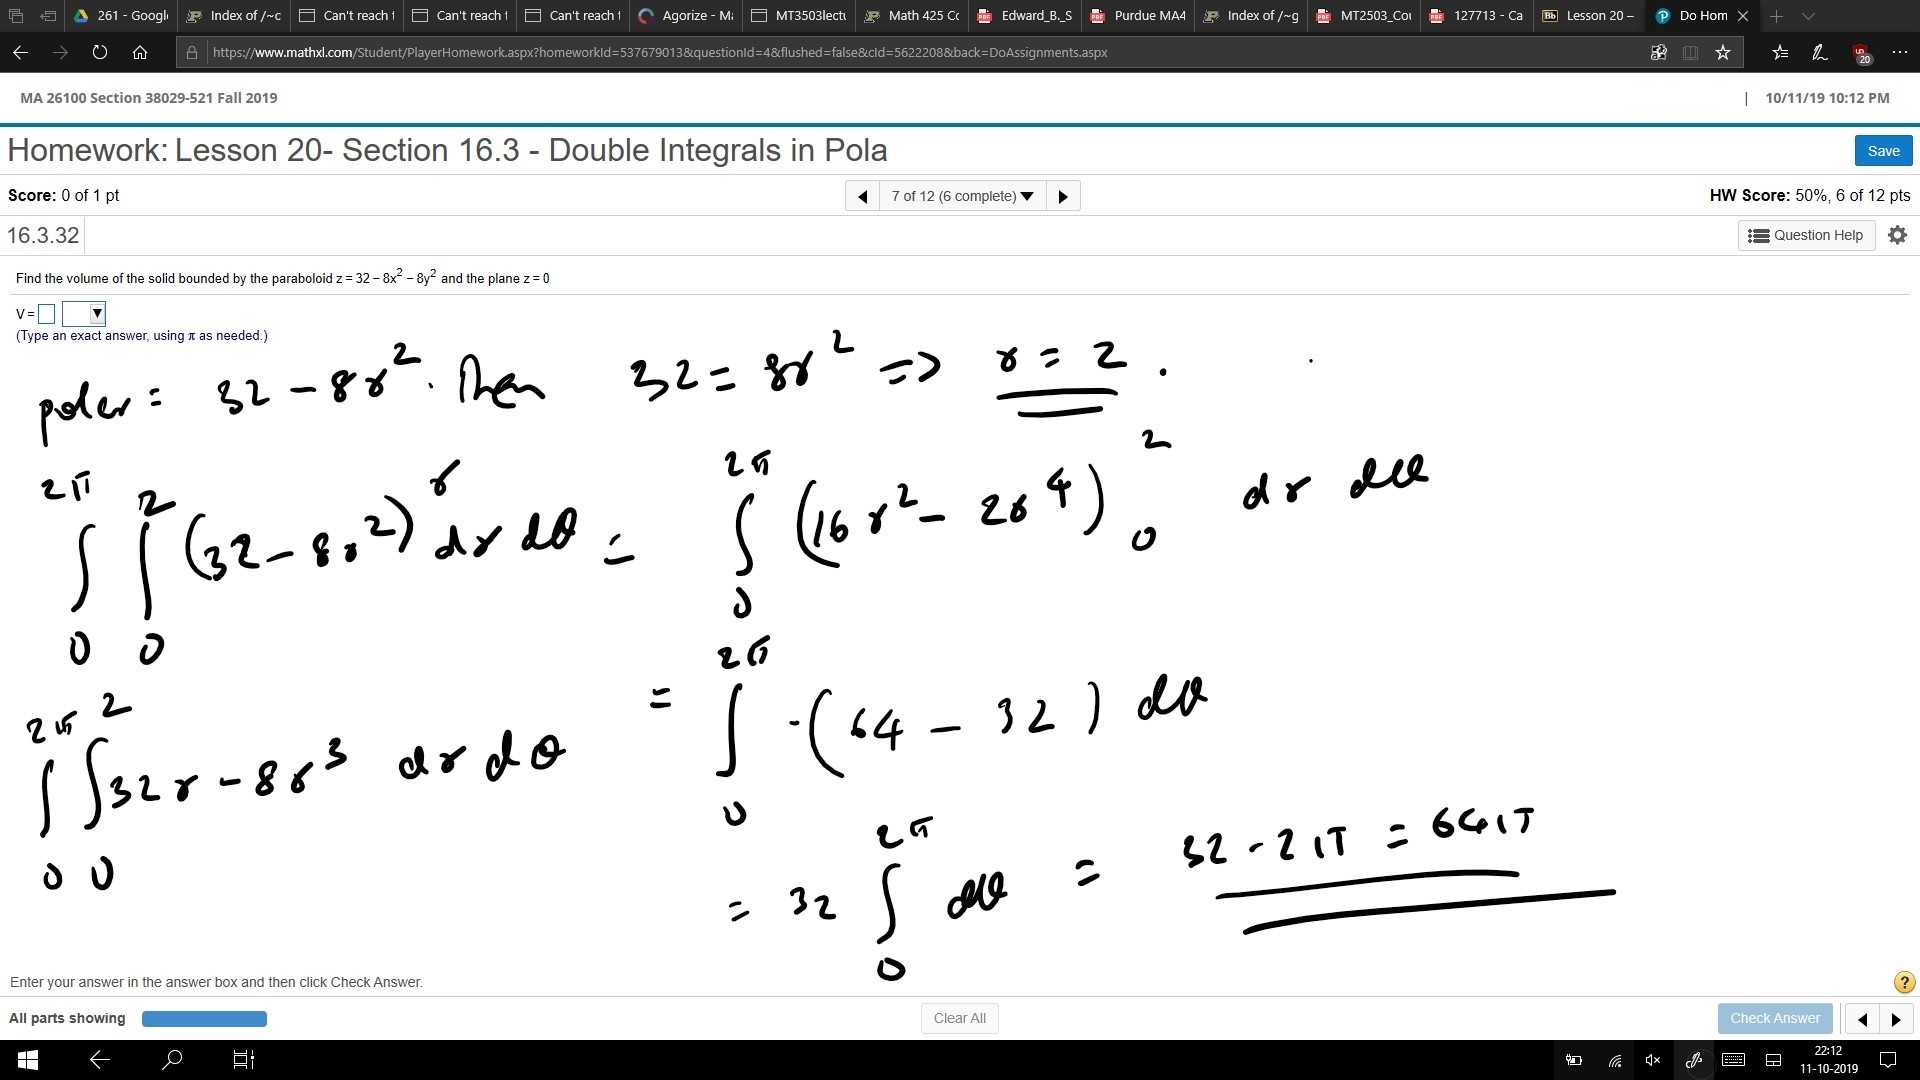 261 - Googl Index of /~c Can't reach t Can't reach t Can't reach t Agorize - Ma MT3503lectu Math 425 Co Edward_B._S Purdue MA4 Index of /~g MT2503_Cou 127713 - Ca Lesson 20 – Do Hom
https://www.mathxl.com/Student/PlayerHomework.aspx?homeworkId=537679013&questionId=4&flushed=false&cId=5622208&back=DoAssignments.aspx 20
MA 26100 Section 38029-521 Fall 2019 | 10/11/19 10:12 PM
Homework: Lesson 20- Section 16.3 - Double Integrals in Pola Save
Score: 0 of 1 pt 7 of 12 (6 complete) HW Score: 50%, 6 of 12 pts
16.3.32 Question Help
Find the volume of the solid bounded by the paraboloid z = 32 − 8x² − 8y² and the plane z = 0
V =
(Type an exact answer, using π as needed.)
polar = 32 - 8r². Then 32 = 8r² => r = 2.
∫₀^2π ∫₀^2 (32 - 8r²) r dr dθ = ∫₀^2π (16r² - 2r⁴)₀² dr dθ
= ∫₀^2π -(64 - 32) dθ
∫₀^2π ∫₀^2 32r - 8r³ dr dθ
= 32 ∫₀^2π dθ = 32 - 2π = 64π
Enter your answer in the answer box and then click Check Answer. ?
All parts showing Clear All Check Answer
22:12
11-10-2019